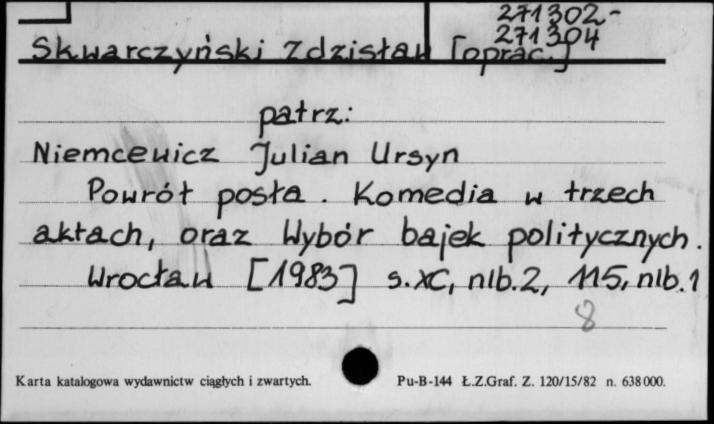 271302-
271304
Skwarczyński Zdzisław [oprac.]
patrz:
Niemcewicz Julian Ursyn
Powrót posła. Komedia w trzech
aktach, oraz Wybór bajek politycznych.
Wrocław [1983] s. XC, nlb. 2, 115, nlb. 1
8
Karta katalogowa wydawnictw ciągłych i zwartych. Pu-B-144 Ł.Z.Graf. Z. 120/15/82 n. 638 000.